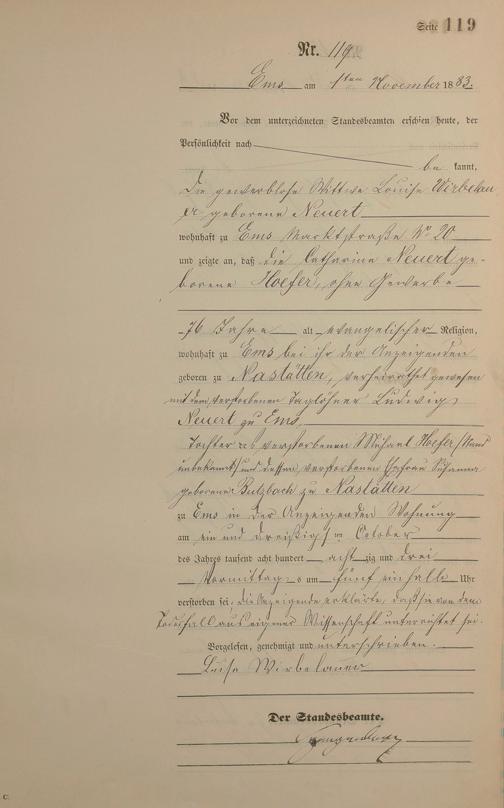 Seite 119
Nr. 119.
Ems am 1ten November 1883.
Vor dem unterzeichneten Standesbeamten erschien heute, der
Persönlichkeit nach
be kannt,
die gewerblose Wittwe Louise Wirbelau
er geborene Neuert
wohnhaft zu Ems Marktstraße No 20
und zeigte an, daß die Catharine Neuert ge-
borene Hoefer, ohne Gewerbe
76 Jahre alt evangelischer Religion,
wohnhaft zu Ems bei ihr der Anzeigenden
geboren zu Nastätten, verheirathet gewesen
mit dem verstorbenen Taglöhner Ludwig
Neuert zu Ems,
Tochter des verstorbenen Michael Hoefer /Stand
unbekannt/ und dessen verstorbenen Ehefrau Susanna
geborene Butzbach zu Nastätten
zu Ems in der Anzeigenden Wohnung
am ein und dreißigsten October
des Jahres tausend acht hundert acht zig und drei
Vormittags um fünf einhalb Uhr
verstorben sei, die Anzeigende erklärte, daß sie von dem
Todesfall aus eigener Wissenschaft unterrichtet sei.
Vorgelesen, genehmigt und unterschrieben.
Luise Wirbelauer
Der Standesbeamte.
C.